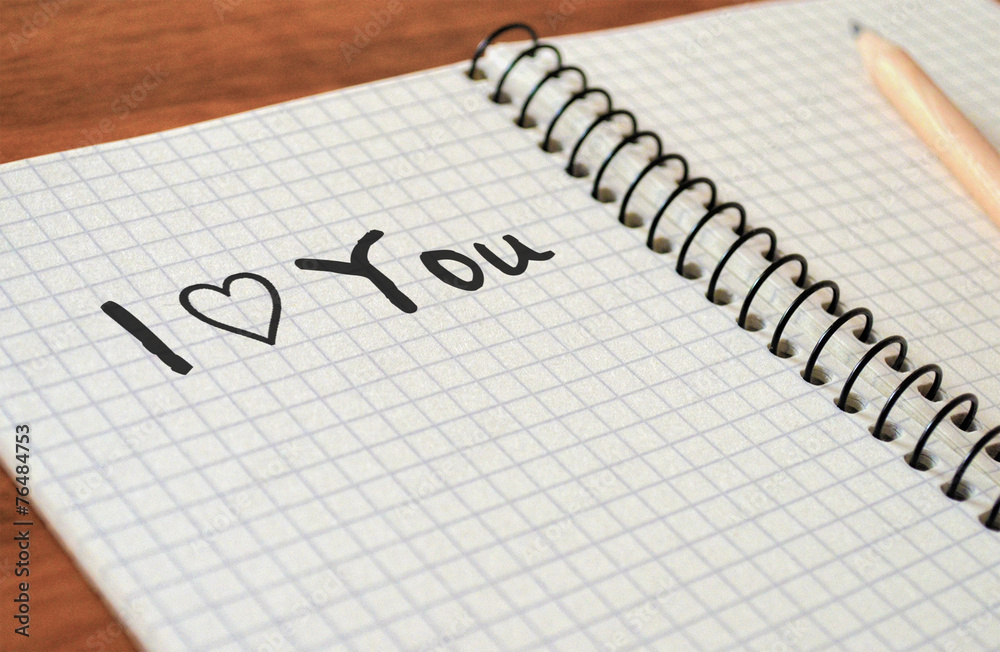 I ♡ You
Adobe Stock | #76484753